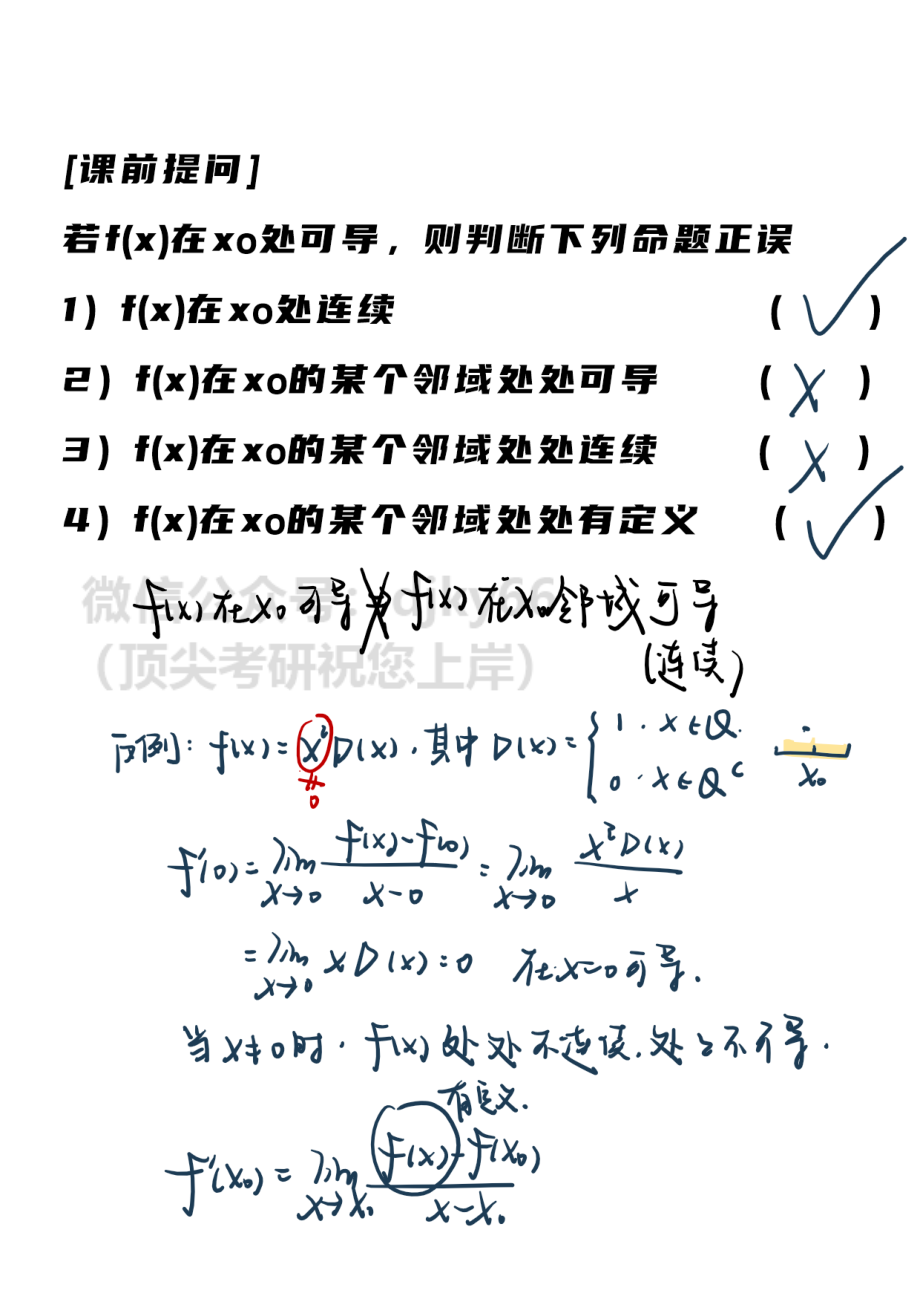 [课前提问]
若f(x)在x₀处可导，则判断下列命题正误
1）f(x)在x₀处连续 （ ✓ ）
2）f(x)在x₀的某个邻域处处可导 （ X ）
3）f(x)在x₀的某个邻域处处连续 （ X ）
4）f(x)在x₀的某个邻域处处有定义 （ ✓ ）
微信公众号:
f(x)在x₀可导⇏f(x)在x₀邻域可导
（顶尖考研祝您上岸）
(连续)
反例: f(x)=x²D(x), 其中D(x)={1, x∈Q. 0, x∈Qᶜ
x₀
≠0
f'(0)=lim x→0 (f(x)-f(0))/(x-0) = lim x→0 x²D(x)/x
=lim x→0 xD(x)=0 在x=0可导.
当x≠0时, f(x)处处不连续, 处处不可导.
有定义.
f'(x₀)=lim x→x₀ (f(x)-f(x₀))/(x-x₀)